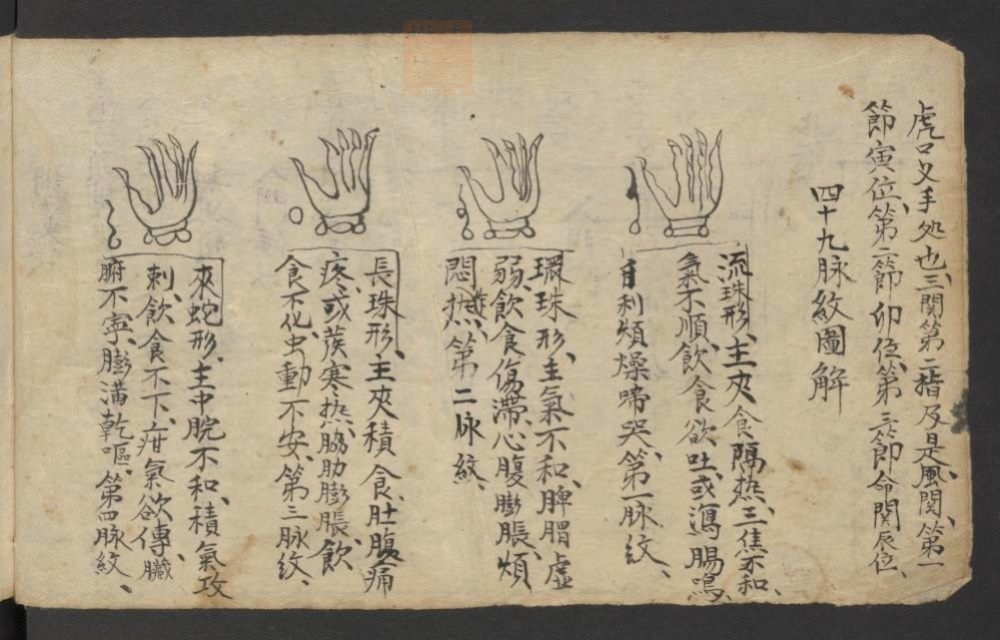 虎口叉手处也、三関第二指及是風関、第一
節寅位、第二節卯位、第三節命関辰位、
四十九脉紋圖解
流珠形、主夾食隔热、三焦不和、
氣不順、飲食欲吐、或瀉腸鳴、
自利煩燥啼哭、第一脉紋、
環珠形、主氣不和、脾胃虚
弱、飲食傷滯、心腹膨脹、煩
悶發热、第二脉紋、
長珠形、主夾積食、肚腹痛
疼、或發寒热、脇肋膨脹、飲
食不化、虫動不安、第三脉紋、
來蛇形、主中脘不和、積氣攻
刺、飲食不下、疳氣欲傳、臟
腑不寧、膨滿乾嘔、第四脉紋、